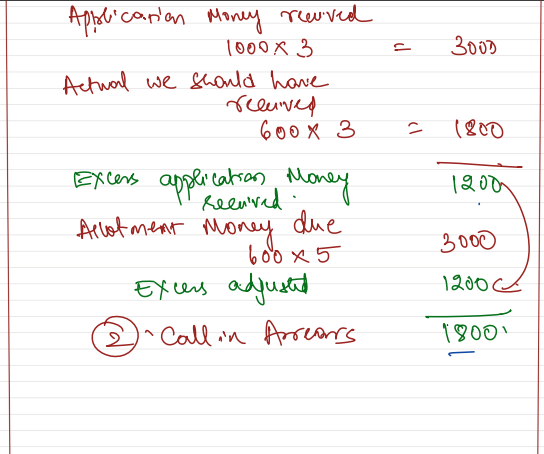 Application Money received
1000 × 3 = 3000
Actual we should have
received
600 × 3 = 1800
Excess application Money 1200
received.
Allotment Money due
600 × 5 3000
Excess adjusted 1200
② Call in Arrears 1800